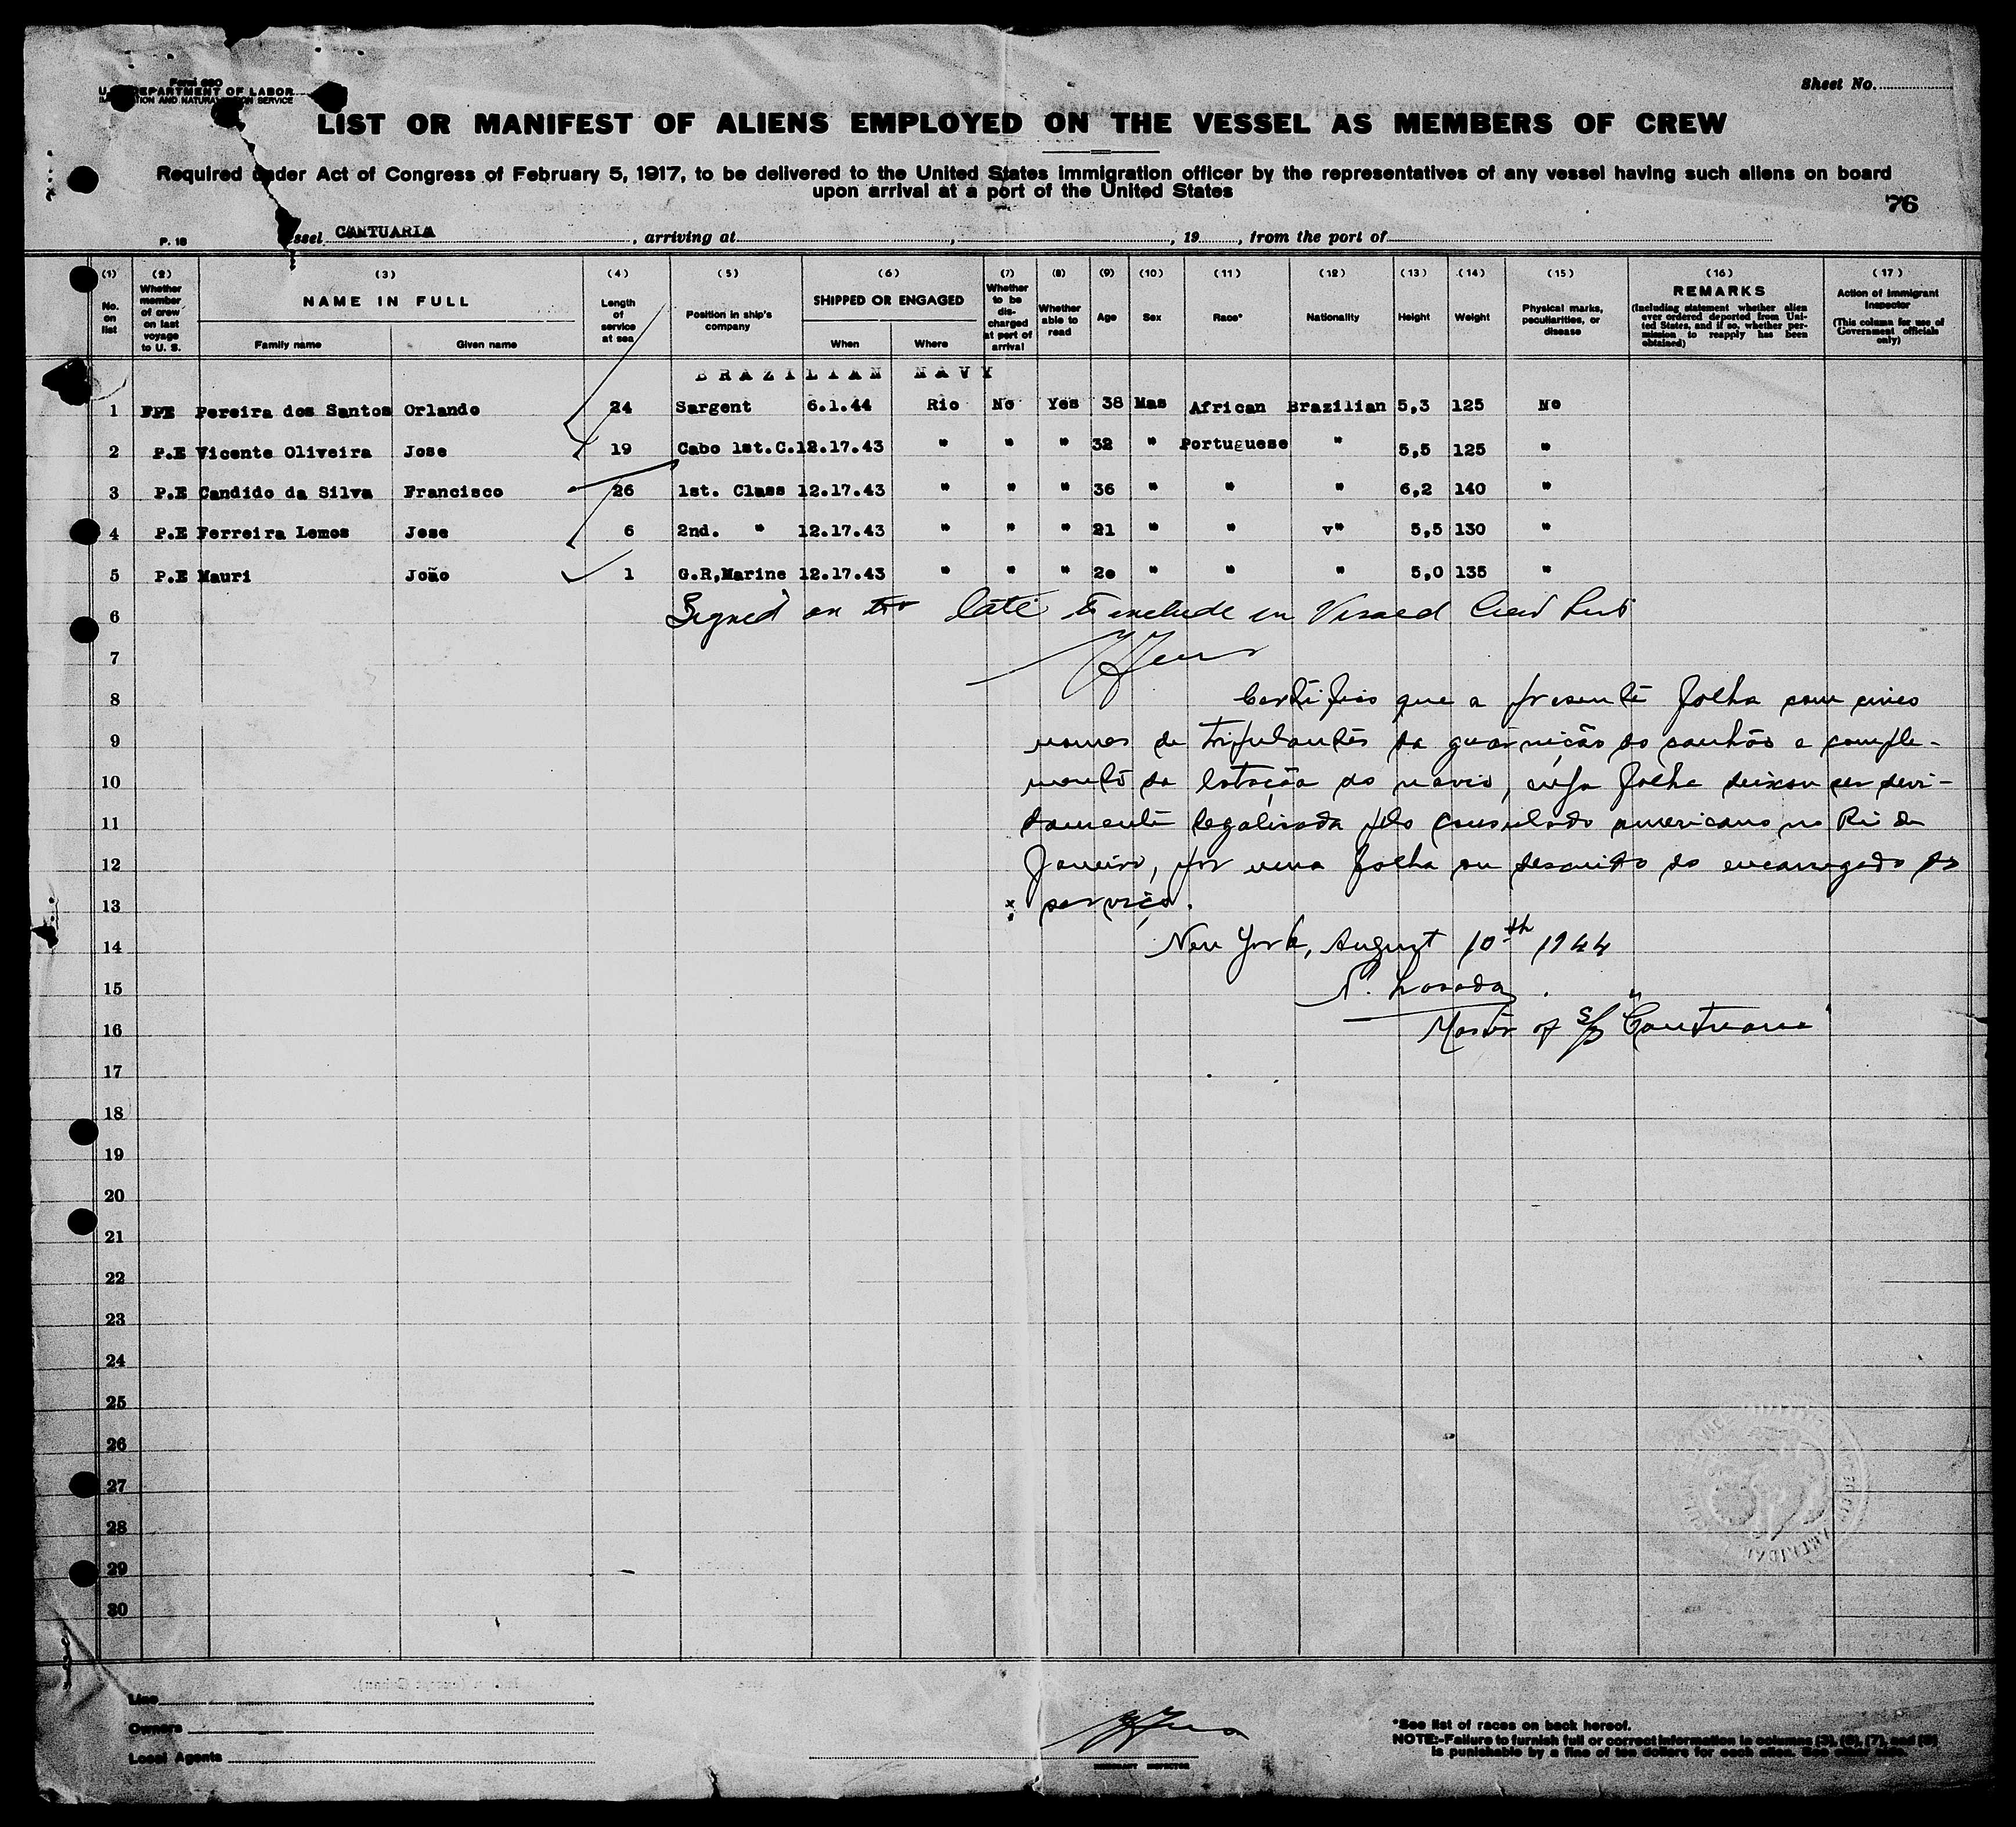 Form 680
U. S. DEPARTMENT OF LABOR
IMMIGRATION AND NATURALIZATION SERVICE
Sheet No.
LIST OR MANIFEST OF ALIENS EMPLOYED ON THE VESSEL AS MEMBERS OF CREW
Required under Act of Congress of February 5, 1917, to be delivered to the United States immigration officer by the representatives of any vessel having such aliens on board
upon arrival at a port of the United States
76
P. 18 Vessel CANTUARIA, arriving at , , 19 , from the port of
(1) No. on list
(2) Whether member of crew on last voyage to U. S.
(3) NAME IN FULL Family name Given name
(4) Length of service at sea
(5) Position in ship's company
(6) SHIPPED OR ENGAGED When Where
(7) Whether to be discharged at port of arrival
(8) Whether able to read
(9) Age
(10) Sex
(11) Race*
(12) Nationality
(13) Height
(14) Weight
(15) Physical marks, peculiarities, or disease
(16) REMARKS (Including statement whether alien ever ordered deported from United States, and if so, whether permission to reapply has been obtained)
(17) Action of Immigrant Inspector (This column for use of Government officials only)
BRAZILIAN NAVY
1 Pereira dos Santos Orlando 24 Sargent 6.1.44 Rio No Yes 38 Mas African Brazilian 5,3 125 No
2 P.E Vicente Oliveira Jose 19 Cabo 1st.C. 12.17.43 " " " 32 " Portuguese " 5,5 125 "
3 P.E Candido da Silva Francisco 26 1st. Class 12.17.43 " " " 36 " " " 6,2 140 "
4 P.E Ferreira Lemos Jose 6 2nd. " 12.17.43 " " " 21 " " v" 5,5 130 "
5 P.E Mauri João 1 G.R,Marine 12.17.43 " " " 2o " " " 5,0 135 "
6 Signed on too late to include in Visaed Crew List
7
8 Certifico que a presente folha com cinco
9 nomes de tripulantes da guarnição do canhão e comple-
10 mento da lotação do navio, cuja folha deixou ser devi-
11 damente legalisada pelo consulado americano no Rio de
12 Janeiro, por uma folha ou descuido do encarregado do
13 serviço.
14 New York, August 10th 1944
15
16 Master of S/S "Cantuaria"
17
18
19
20
21
22
23
24
25
26
27
28
29
30
Line
Owners
Local Agents
IMMIGRANT INSPECTOR
*See list of races on back hereof.
NOTE:-Failure to furnish full or correct information in columns (3), (6), (7), and (8)
is punishable by a fine of ten dollars for each alien. See other side.